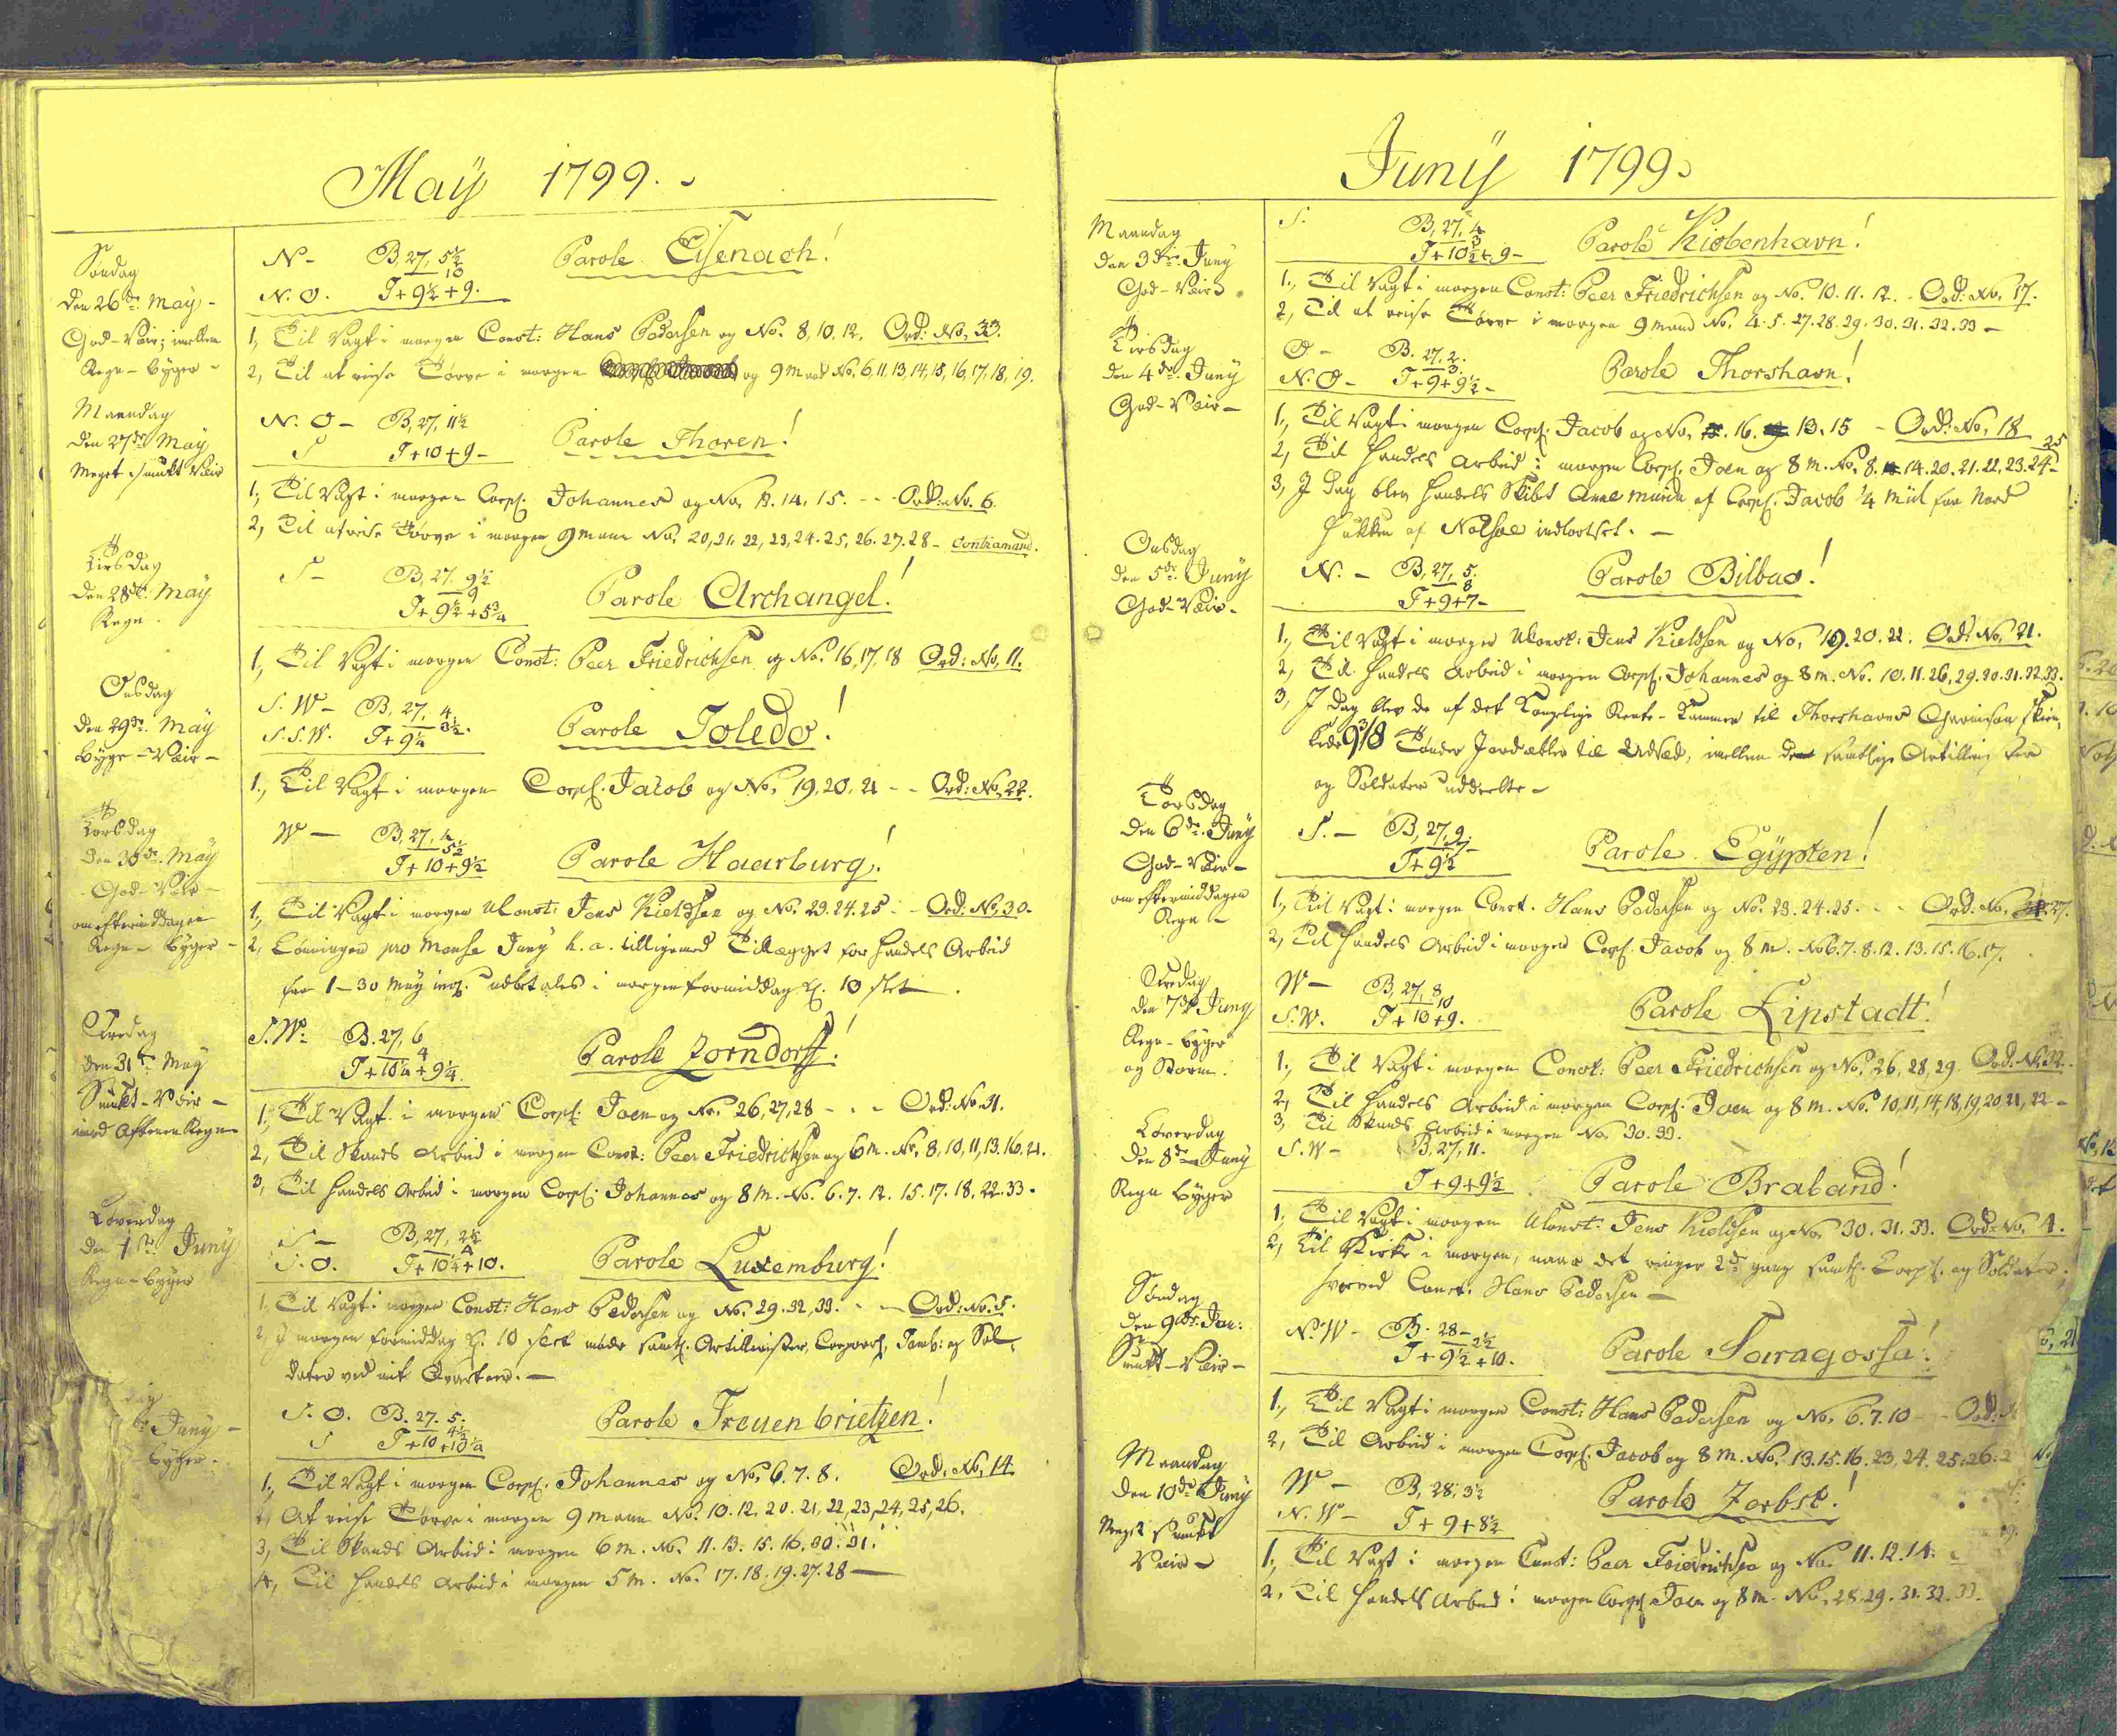 May 1799.
Søndag
den 26de May -
God-Veir; imellem
Regn-byger -
N- B, 27, 5½ Parole Eisenach!
10
N.O. T+9½+9.
1, Til Vagt i morgen Const: Hans Pedersen og No. 8, 10, 12. Ord: No. 33.
2, Til at reise Tørve i morgen og 9 mand No. 6, 11, 13, 14, 15, 16, 17, 18, 19.
Mandag
den 27de May
Meget smukt Veir
N.O- B, 27, 11½ Parole Thoren!
S T+10+9-
1, Til Vagt i morgen Corpl. Johannes og No. 13. 14. 15. -- Ord: No. 6.
2, Til at reise Tørve i morgen 9 mann No. 20, 21, 22, 23, 24. 25, 26. 27. 28 - Contramand.
Tirsdag
den 28de May
Regn.
S- B, 27. 9½ Parole Archangel!
9
T+9½+5¾
1, Til Vagt i morgen Const: Peer Friedrichsen og No. 16, 17, 18 Ord: No. 11.
Onsdag
den 29de May
byge-Veir-
S.W- B, 27, 4 Parole Toledo!
3½.
S.S.W. T+9¼
1, Til Vagt i morgen Corpl. Jacob og No. 19. 20. 21 -- Ord: No. 22.
Torsdag
den 30de May
God-Veir-
om eftermiddagen
Regn-byger-
W- B, 27, 4 Parole Haarburg!
5½
T+10+9½
1, Til Vagt i morgen UConst: Jens Kieldsen og No. 23. 24. 25 - Ord: No. 30.
2, Lønningen pro Mense Juny h.a. tilligemed Tillægget for Handels Arbeid
fra 1-30 May incl. udbetales i morgen formiddag Kl. 10 slet.
Fredag
den 31te May
Smukt-Veir-
imod Aftenen Regn
S.W. B. 27, 6 Parole Zorndorff!
4
T+10¼+9¼.
1, Til Vagt i morgen Corpl. Joen og No. 26, 27, 28 - - - Ord: No. 31.
2, Til Skands Arbeid i morgen Const: Peer Friedrichsen og 6 m. No. 8, 10, 11, 13. 16, 21.
3, Til Handels Arbeid i morgen Corpl. Johannes og 8 m. No. 6. 7. 12. 15. 17. 18. 22. 33.
Løverdag
den 1te Juny
Regn-byger
S- B, 27, 2½ Parole Luxemburg!
4
S.O. T+10¼+10.
1, Til Vagt i morgen Const: Hans Pedersen og No. 29. 32, 33. - - Ord: No. 5.
2, I morgen formiddag Kl. 10 slet møde samtl. Artillerister, Corporl, Tamb: og Sol-
dater ved mit Qvarteer. -
dag
de Juny -
- byger.
S.O. B. 27. 5. Parole Treuenbrietzen!
4½
S T+10+10¼
1, Til Vagt i morgen Corpl. Johannes og No. 6. 7. 8. Ord: No. 14
2, At reise Tørve i morgen 9 mann No. 10. 12. 20. 21, 22, 23, 24, 25, 26.
3, Til Skands Arbeid i morgen 6 m. No. 11. 13. 15. 16. 30. 31.
4, Til Handels Arbeid i morgen 5 m. No. 17. 18. 19. 27. 28 -
Juny 1799.
Mandag
den 3die Juny
God-Veir.
S. B, 27, 4 Parole Kiøbenhavn!
3
T+10½+9-
1, Til Vagt i morgen Const: Peer Friedrichsen og No. 10. 11. 12. - Ord: No. 17.
2, Til at reise Tørve i morgen 9 mand No. 4. 5. 27. 28. 29. 30. 31. 32. 33 -
Tirsdag
den 4de Juny
God-Veir-
O- B. 27. 2. Parole Thorshavn!
3.
N.O- T+9+9½-
1, Til Vagt i morgen Corpl. Jacob og No. 16. 13. 15 - Ord: No. 18
2, Til Handels Arbeid i morgen Corpl. Joen og 8 m. No. 8. 14. 20. 21. 22. 23. 24- 25
3, I Dag blev Handels Skibet Anne Maria af Corpl. Jacob ¼ Miil fra Nord
Hukken af Nolsøe indlootset. -
Onsdag
den 5de Juny
God-Veir-
N.- B, 27, 5. Parole Bilbao!
8
T+9+7-
1, Til Vagt i morgen UConst: Jens Kieldsen og No. 19. 20. 22. Ord: No. 21.
2, Til Handels Arbeid i morgen Corpl. Johannes og 8 m. No. 10. 11. 26, 29. 30. 31. 32. 33.
3, I Dag blev de af det Kongelige Rente-Kammer til Thorshavns Garnison skien-
kede 9⅜ Tønder Jordæbler til Udsæd, imellem samtlige Artillerister
og Soldater uddeelte -
Torsdag
den 6de Juny
God-Veir-
om eftermiddagen
Regn -
S.- B, 27, 9. Parole Egÿpten!
T+9½
1, Til Vagt i morgen Const. Hans Pedersen og No. 23. 24. 25. - - Ord: No. 27.
2, Til Handels Arbeid i morgen Corpl. Jacob og 8 m. No 6. 7. 8. 12. 13. 15. 16. 17.
Fredag
den 7de Juny
Regn-byger
og Storm.
W- B, 27, 8 Parole Lipstadt!
10
S.W. T+10+9.
1, Til Vagt i morgen Const: Peer Friedrichsen og No. 26, 28, 29. Ord: No. 32.
2, Til Handels Arbeid i morgen Corpl. Joen og 8 m. No. 10, 11, 14, 18, 19, 20 21, 22 -
3, Til Skands Arbeid i morgen No. 30. 33.
Løverdag
den 8de Juny
Regn byger
S.W- B, 27, 11. Parole Braband!
T+9+9½
1, Til Vagt i morgen UConst: Jens Kieldsen og No. 30. 31. 33. Ord: No. 4.
2, Til Kirke i morgen, naar det ringer 2de gang samtl. Corpl. og Soldater;
hvorved Const. Hans Pedersen -
Søndag
den 9de Jun:
Smukt-Veir-
N.W- B. 28- Parole Saragossa!
2½
T+9½+10.
1, Til Vagt i morgen Const: Hans Pedersen og No. 6. 7. 10 - - Ord:
2, Til Arbeid i morgen Corpl. Jacob og 8 m. No. 13. 15. 16. 23, 24. 25. 26. 2
Mandag
den 10de Juny
Meget smukt
Veir-
W- B, 28, 3½ Parole Zerbst!
N.W- T+9+8½
1, Til Vagt i morgen Const: Peer Friedrichsen og No. 11. 12. 14.
2, Til Handels Arbeid i morgen Corpl Joen og 8 m. No. 28. 29. 31. 32. 33.